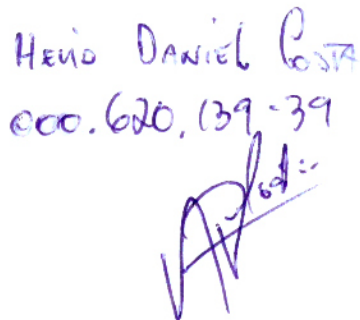 HELIO DANIEL COSTA
000.620.139-39